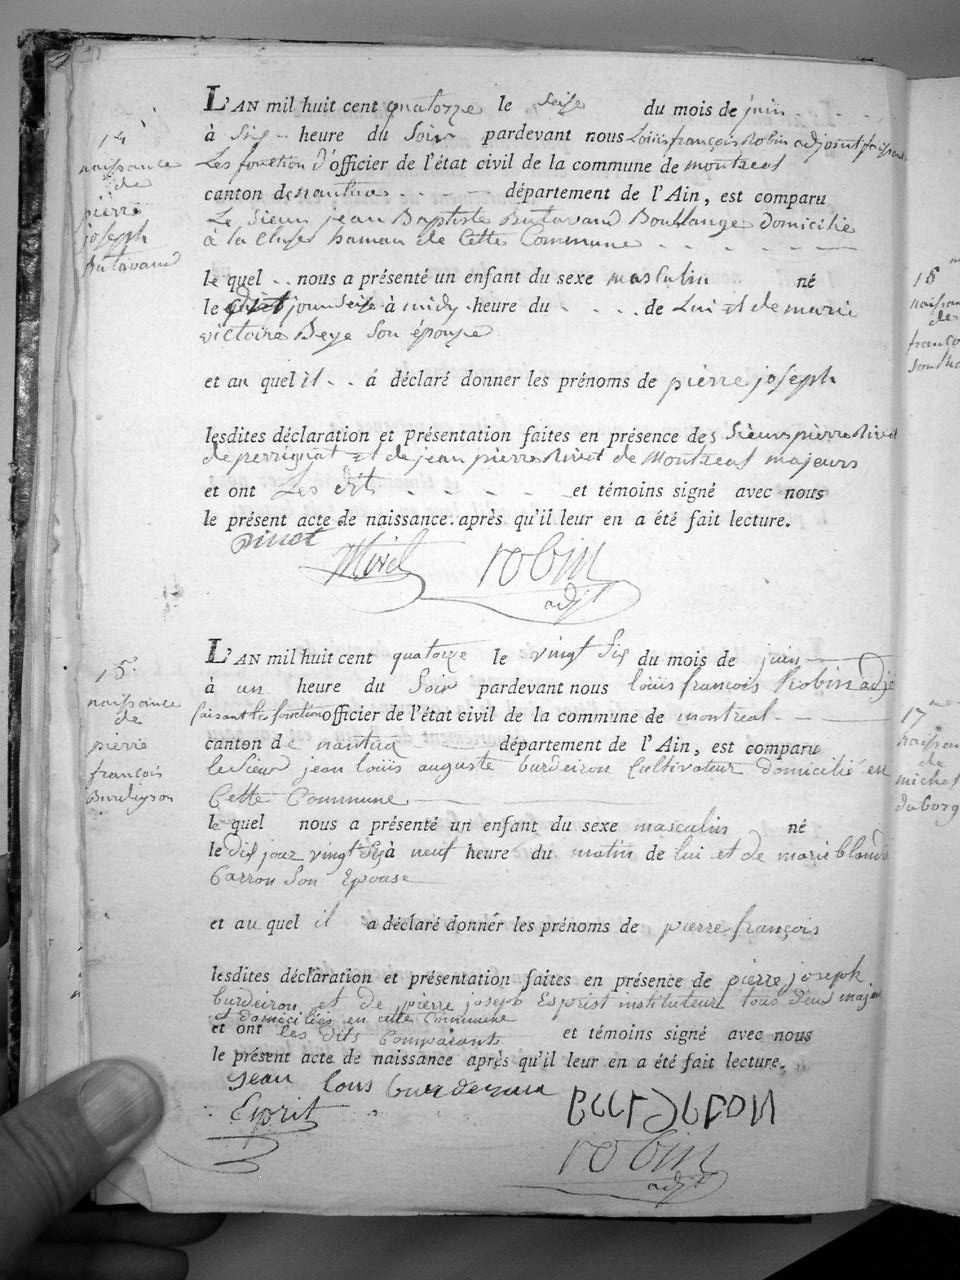 14
naissance
de
pierre
joseph
Butavand
L'AN mil huit cent quatorze le seize du mois de juin
à six heure du soir pardevant nous Louis françois Robin adjoint faisant
Les fonction d'officier de l'état civil de la commune de montreal
canton de nantua département de l'Ain, est comparu
Le sieur jean Baptiste Butavand Boullange domicilié
à la Cluse hamau de Cette Commune
le quel nous a présenté un enfant du sexe masculin né
le jour seize à midy heure du de Lui et de marie
victoire Beye son épouse
et au quel il à déclaré donner les prénoms de pierre joseph
lesdites déclaration et présentation faites en présence des sieurs pierre Nivet
de perrignat et de jean pierre Nivet de Montreal majeurs
et ont Les dits et témoins signé avec nous
le présent acte de naissance après qu'il leur en a été fait lecture.
robin
adjt
15
naissance
de
pierre
françois
Burdeyron
L'AN mil huit cent quatorze le vingt six du mois de juin
à un heure du soir pardevant nous louis françois Robin adjt
faisant les fonction officier de l'état civil de la commune de montreal
canton de nantua département de l'Ain, est comparu
le Sieur jean louis auguste burdeiron Cultivateur domicilié en
Cette Commune
le quel nous a présenté un enfant du sexe masculin né
le dis jour vingt six à neuf heure du matin de lui et de marie blande
Carron son Epouse
et au quel il a déclaré donner les prénoms de pierre françois
lesdites déclaration et présentation faites en présence de pierre joseph
burdeiron et de pierre joseph Esprist instituteur tous deux majeur
et domiciliés en cette Commune
et ont les dits Comparants et témoins signé avec nous
le présent acte de naissance après qu'il leur en a été fait lecture.
jean louis
Esprit
robin
adjt
16
naissan
de
franço
17
naissan
de
michel
duborg